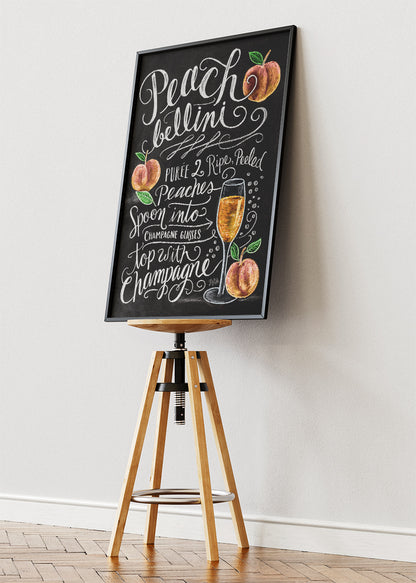 Peach
bellini
PURÉE 2 Ripe, Peeled
Peaches
Spoon into
CHAMPAGNE GLASSES
top with
Champagne